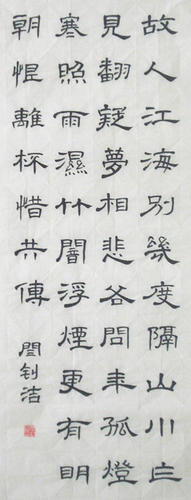 故人江海別幾度隔山川乍
見翻疑夢相悲各問年孤燈
寒照雨濕竹闇浮煙更有明
朝恨離杯惜共傳
閆钊洁